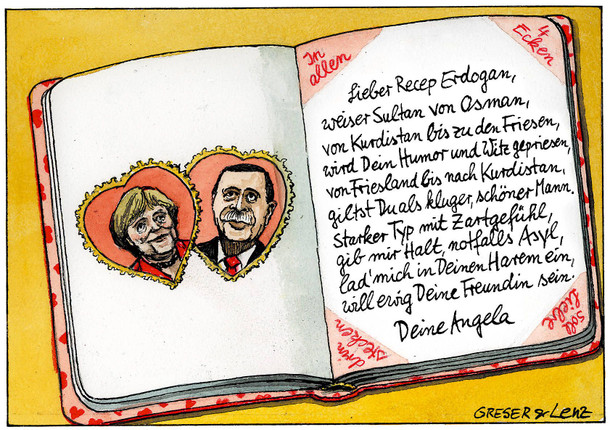 In
allen
4
Ecken
Lieber Recep Erdogan,
weiser Sultan von Osman,
von Kurdistan bis zu den Friesen,
wird Dein Humor und Witz gepriesen,
von Friesland bis nach Kurdistan,
giltst Du als kluger, schöner Mann.
Starker Typ mit Zartgefühl,
gib mir Halt, notfalls Asyl,
lad' mich in Deinen Harem ein,
will ewig Deine Freundin sein.
Deine Angela
soll
Liebe
drin
stecken
GRESER & LENZ